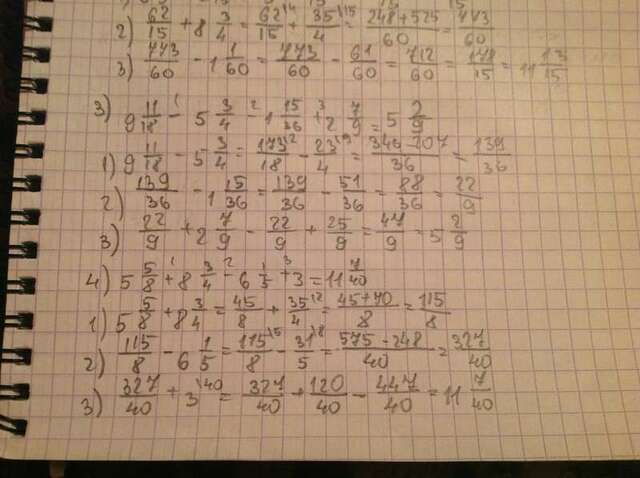 2) 62/15 + 8 3/4 = 62/15 \4 + 35/4 \15 = 248+525/60 = 773/60
3) 773/60 - 1 1/60 = 773/60 - 61/60 = 712/60 = 178/15 = 11 13/15
3) 9 11/18 -¹ 5 3/4 -² 1 15/36 +³ 2 7/9 = 5 2/9
1) 9 11/18 - 5 3/4 = 173/18 \2 - 23/4 \9 = 346-207/36 = 139/36
2) 139/36 - 1 15/36 = 139/36 - 51/36 = 88/36 = 22/9
3) 22/9 + 2 7/9 = 22/9 + 25/9 = 47/9 = 5 2/9
4) 5 5/8 +¹ 8 3/4 -² 6 1/5 +³ 3 = 11 7/40
1) 5 5/8 + 8 3/4 = 45/8 + 35/4 \2 = 45+70/8 = 115/8
2) 115/8 - 6 1/5 = 115/8 \5 - 31/5 \8 = 575-248/40 = 327/40
3) 327/40 + 3 \40 = 327/40 + 120/40 = 447/40 = 11 7/40